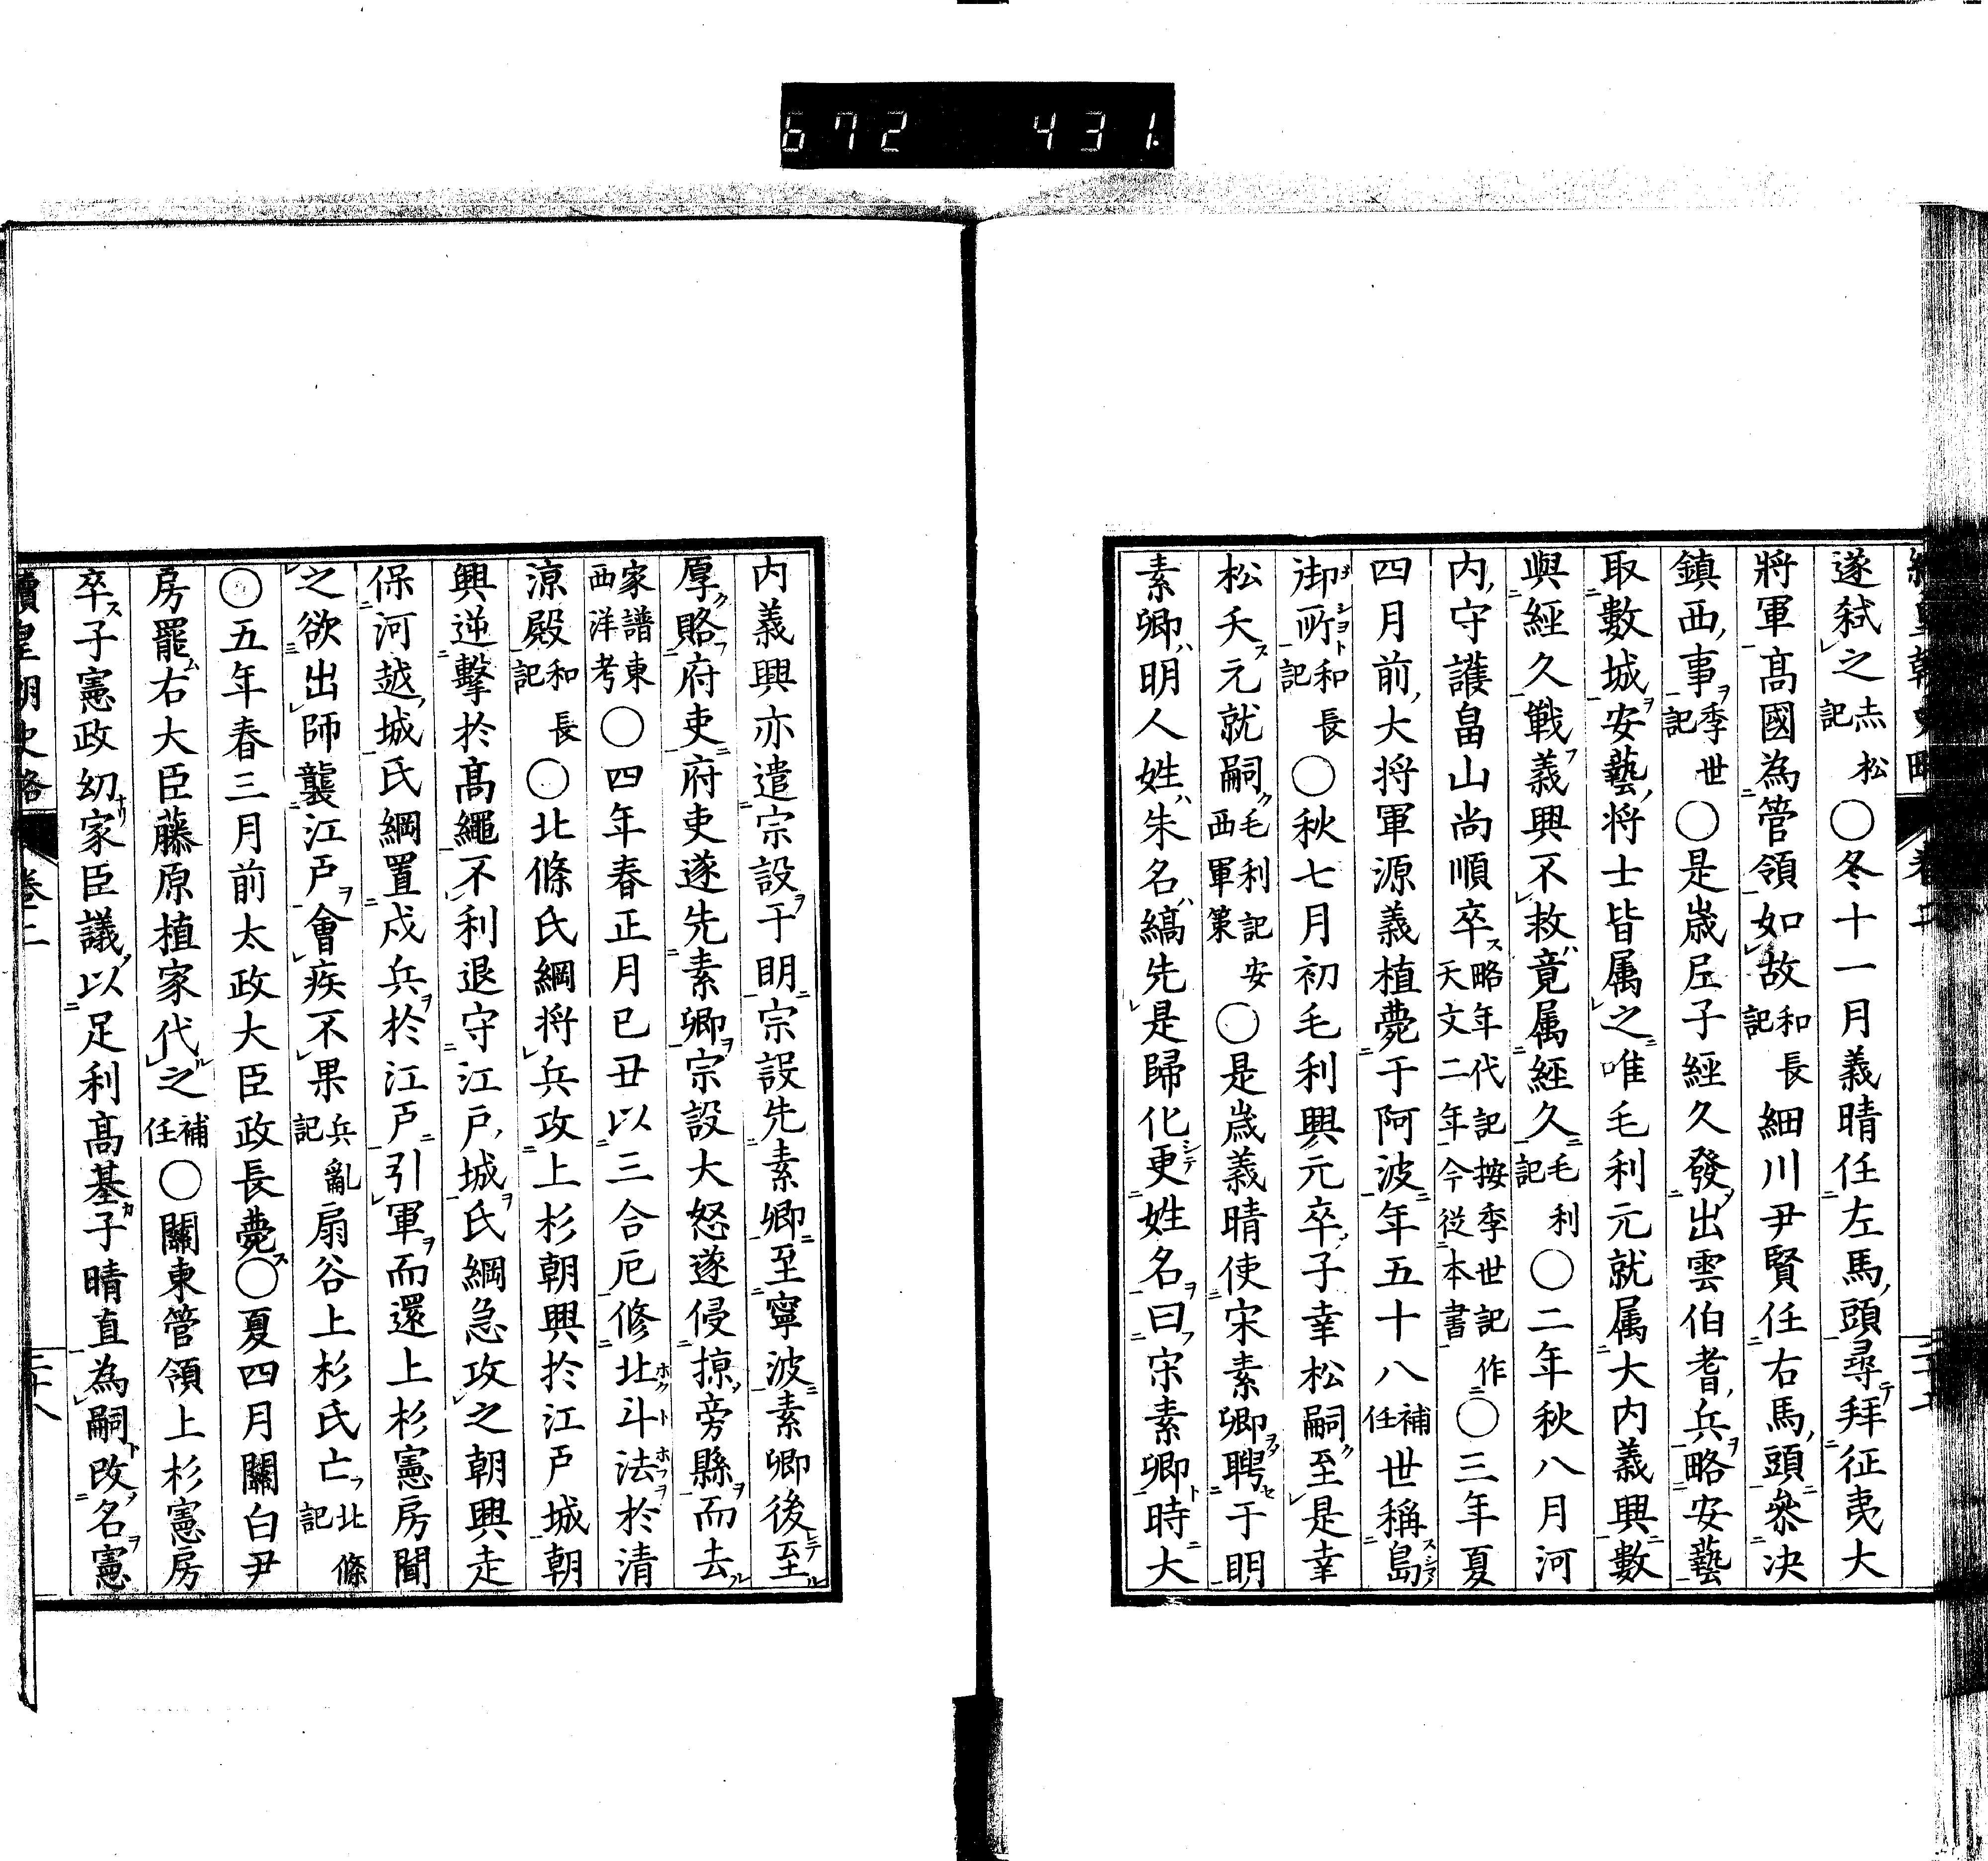 672 431
續皇朝史略 卷二
遂弑之赤松記○冬十一月義晴任左馬頭尋拜征夷大
將軍高國為管領如故和長記細川尹賢任右馬頭參決
鎮西事季世記○是歳尼子經久發出雲伯耆兵略安藝
取數城安藝將士皆属之唯毛利元就属大内義興數
與經久戰義興不救竟属經久毛利記○二年秋八月河
内守護畠山尚順卒略年代記按季世記作天文二年今從本書○三年夏
四月前大将軍源義植薨于阿波年五十八補任世稱島
御所和長記○秋七月初毛利興元卒子幸松嗣至是幸
松夭元就嗣毛利記安西軍策○是歳義晴使宋素卿聘于明
素卿明人姓朱名縞先是歸化更姓名曰宋素卿時大
内義興亦遣宗設于明宗設先素卿至寧波素卿後至
厚賂府吏府吏遂先素卿宗設大怒遂侵掠旁縣而去
家譜東西洋考○四年春正月己丑以三合厄修北斗法於清
涼殿和長記○北條氏綱将兵攻上杉朝興於江戸城朝
興逆擊於高繩不利退守江戸城氏綱急攻之朝興走
保河越城氏綱置戍兵於江戸引軍而還上杉憲房聞
之欲出師襲江戸會疾不果兵亂記扇谷上杉氏亡北條記
○五年春三月前太政大臣政長薨○夏四月關白尹
房罷右大臣藤原植家代之補任○關東管領上杉憲房
卒子憲政幼家臣議以足利高基子晴直為嗣改名憲
續皇朝史略 卷二 二十八